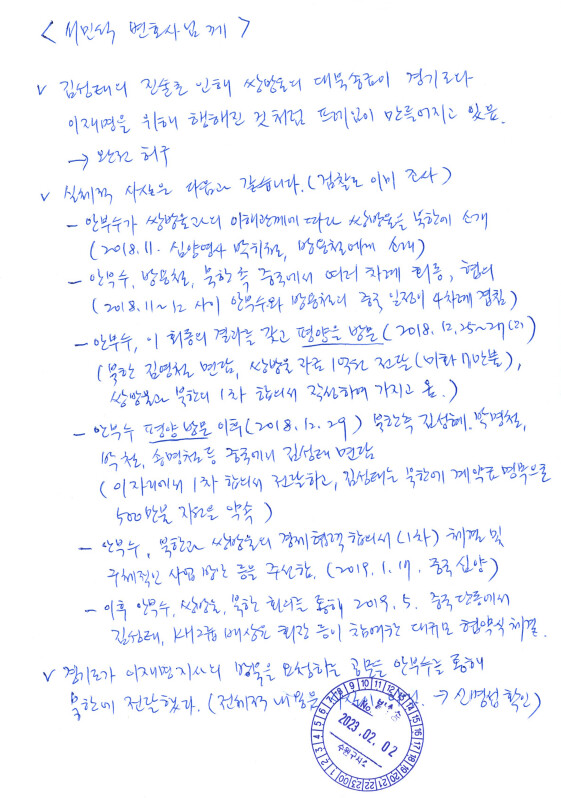 < 서민석 변호사님께 >
v 김성태의 진술로 인해 쌍방울의 대북송금이 경기도와
이재명을 위해 행해진 것처럼 프레임이 만들어지고 있음.
→ 완전 허구
v 실체적 사실은 다음과 같습니다. (검찰도 이미 조사)
- 안부수가 쌍방울과의 이해관계에 따라 쌍방울을 북한에 소개
(2018.11. 심양영사 박치철, 방용철에게 소개)
- 안부수, 방용철, 북한측 중국에서 여러차례 회동, 협의
(2018.11~12 사이 안부수와 방용철의 중국 일정이 4차례 겹침)
- 안부수, 이 회동의 결과를 갖고 평양을 방문 (2018.12.25~29
(북한 김영철 면담, 쌍방울 자금 1억원 전달 (미화 7만불),
쌍방울과 북한의 1차 합의서 작성하여 가지고 옴.)
- 안부수 평양 방문 이후 (2018.12.29) 북한측 김성혜, 박명철,
박철, 송명철 등 중국에서 김성태 면담
(이 자리에서 1차 합의서 전달하고, 김성태는 북한에 계약금 명목으로
500만불 지원을 약속)
- 안부수, 북한과 쌍방울의 경제협력 합의서(1차) 체결 및
구체적인 사업 방안 등을 주선함. (2019.1.17. 중국 심양)
- 이후 안부수, 쌍방울, 북한 회의를 통해 2019.5. 중국 단동에서
김성태, KH그룹 배상윤 회장 등이 참여한 대규모 협약식 체결.
v 경기도가 이재명지사의 방북을 요청하는 공문을 안부수를 통해
북한에 전달했다. (전체적 내용을 → 신명섭 확인)
2023.02.02
수원구치소